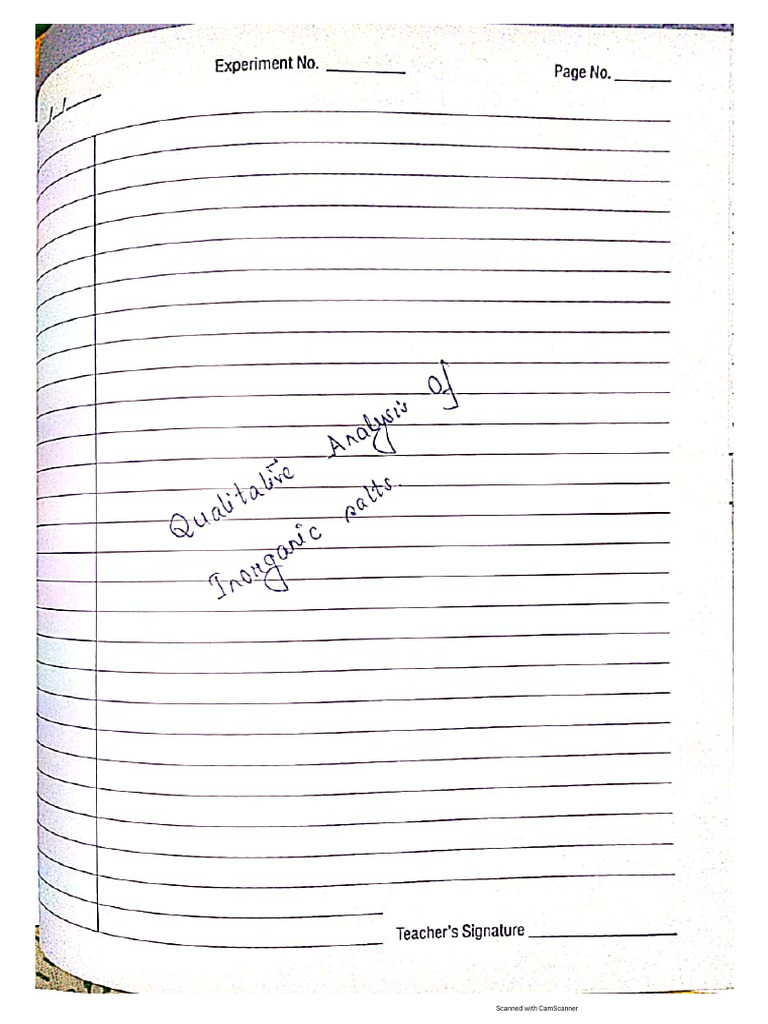 Experiment No.
Page No.
Qualitative Analysis Of
Inorganic salts.
Teacher's Signature
Scanned with CamScanner